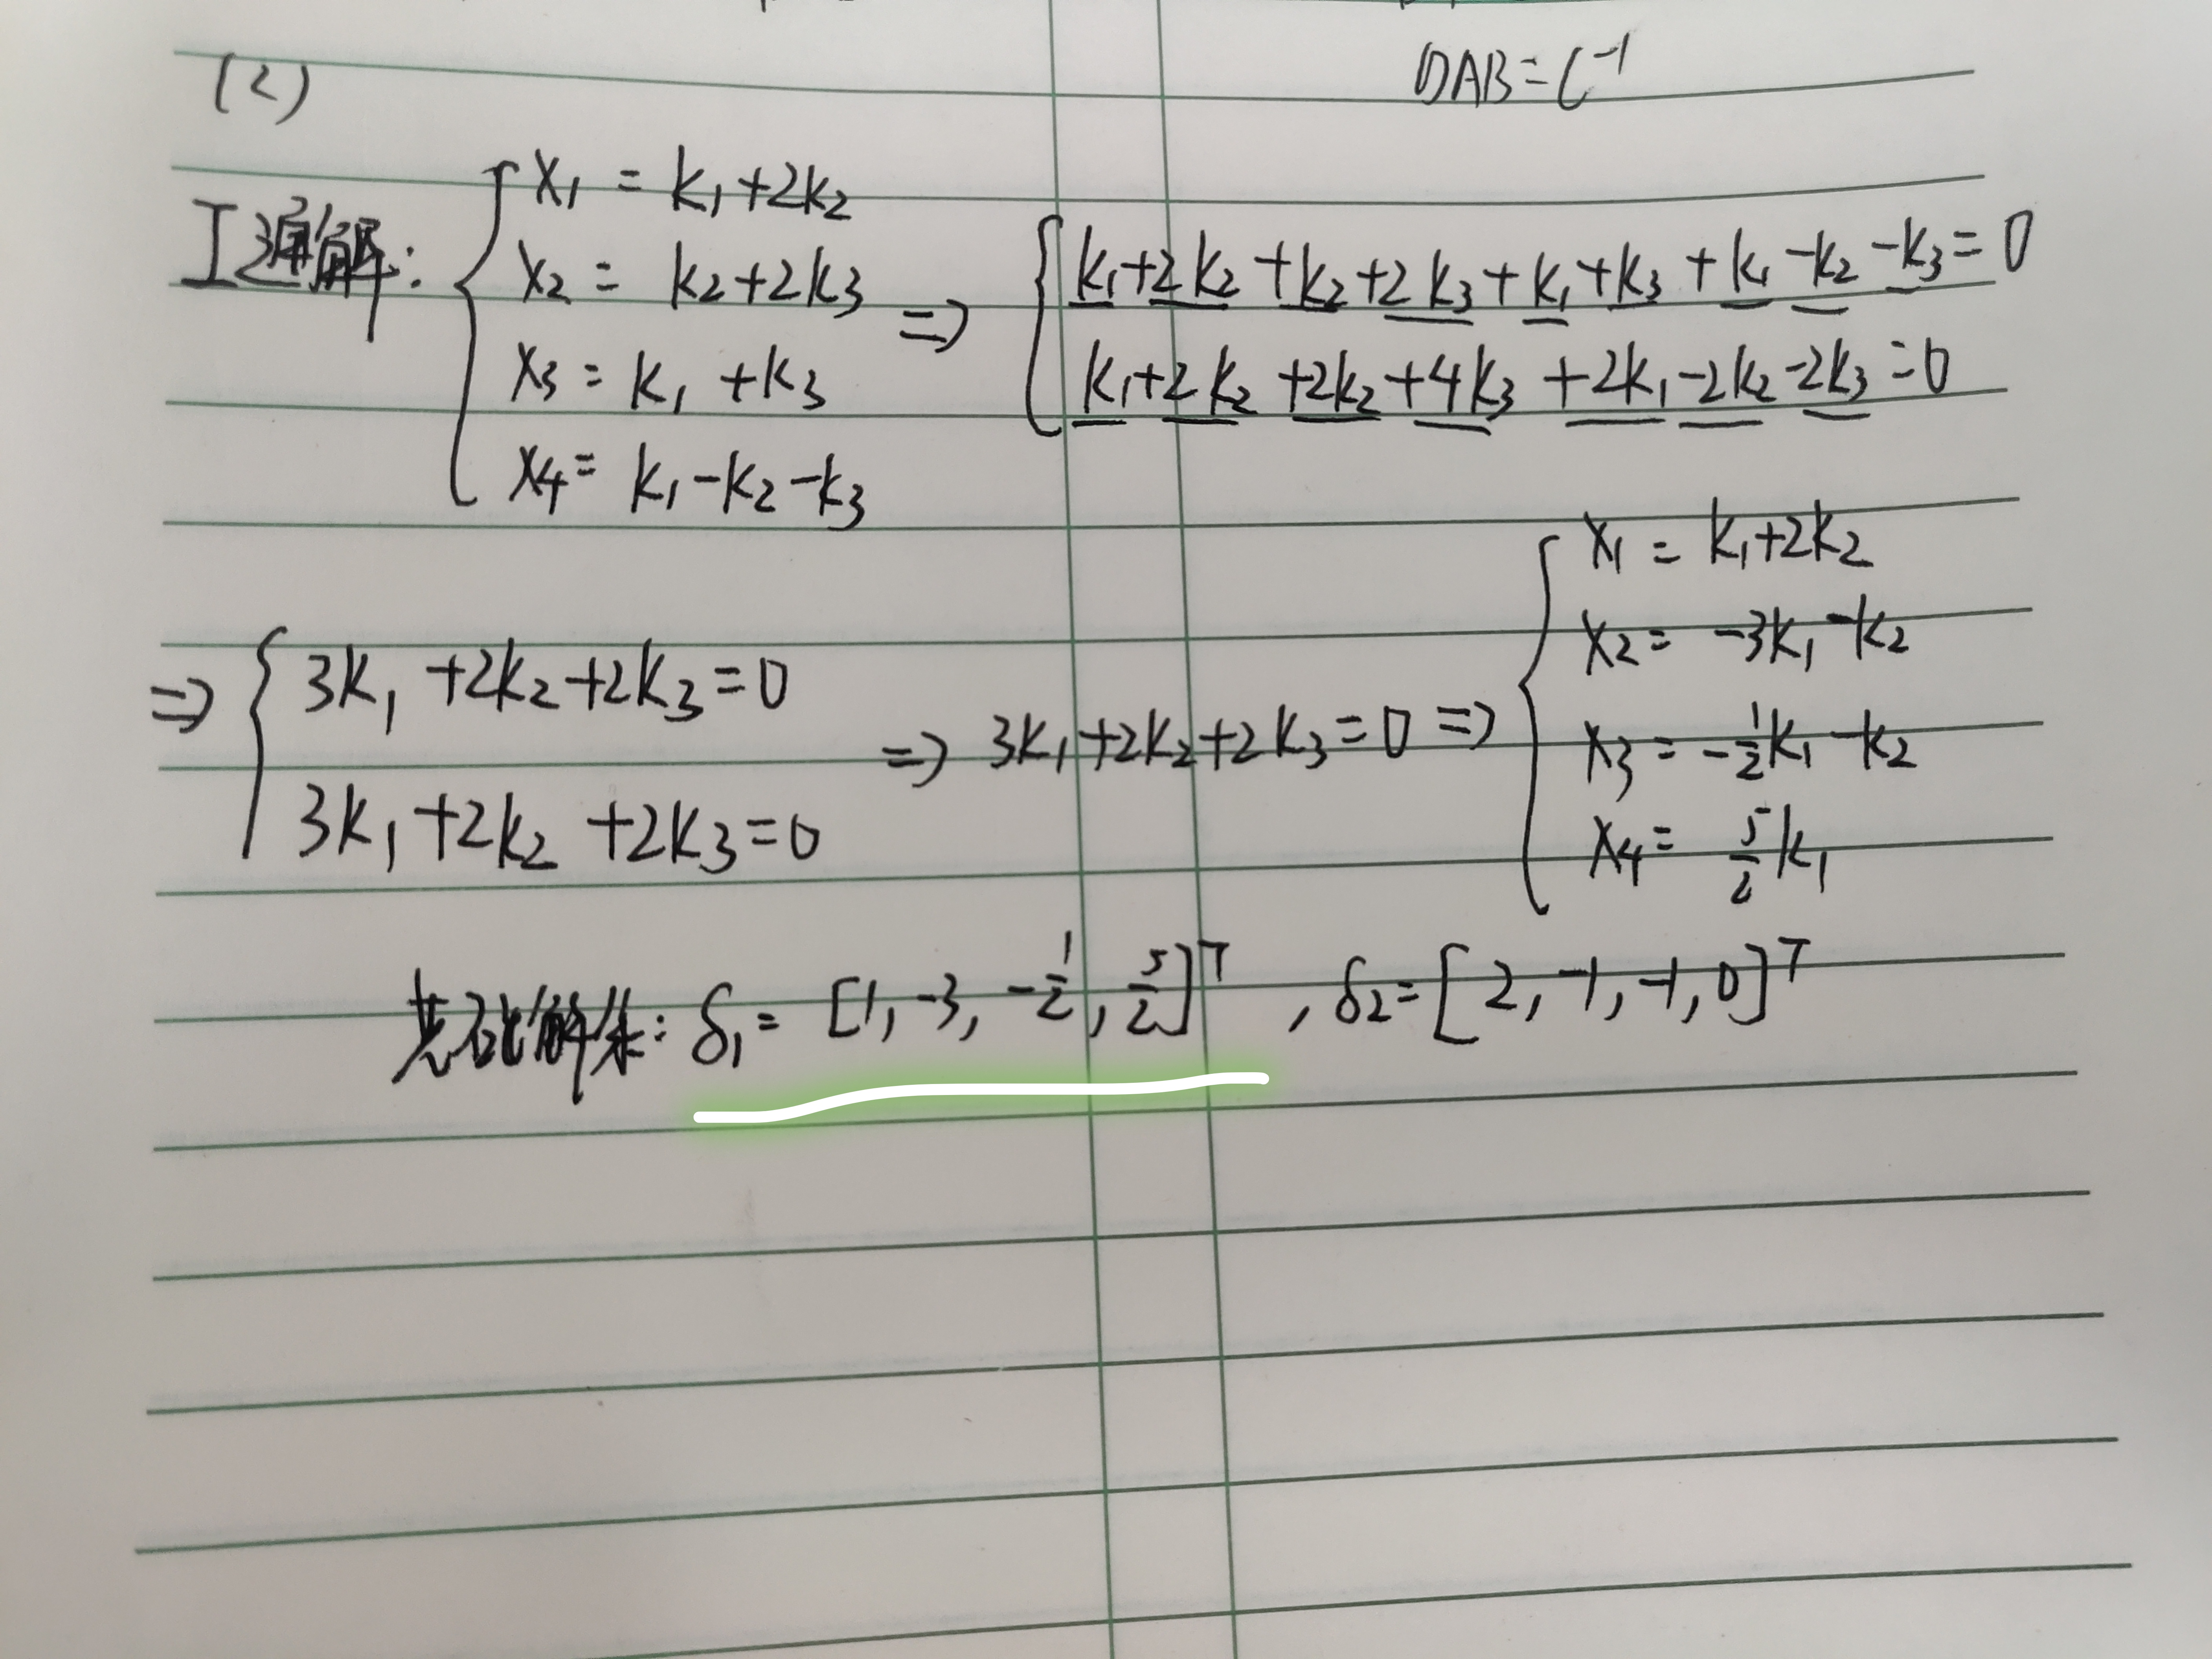 DAB=C⁻¹
(2)
I通解:
x₁ = k₁+2k₂
x₂ = k₂+2k₃
x₃ = k₁ +k₃
x₄= k₁-k₂-k₃
=>
k₁+2k₂+k₂+2k₃+k₁+k₃+k₁-k₂-k₃=0
k₁+2k₂+2k₂+4k₃+2k₁-2k₂-2k₃=0
=>
3k₁+2k₂+2k₃=0
3k₁+2k₂+2k₃=0
=> 3k₁+2k₂+2k₃=0 =>
x₁ = k₁+2k₂
x₂= -3k₁-k₂
x₃= -½k₁-k₂
x₄= 5/2 k₁
基础解系: δ₁= [1,-3,-½,5/2]ᵀ, δ₂=[2,-1,-1,0]ᵀ